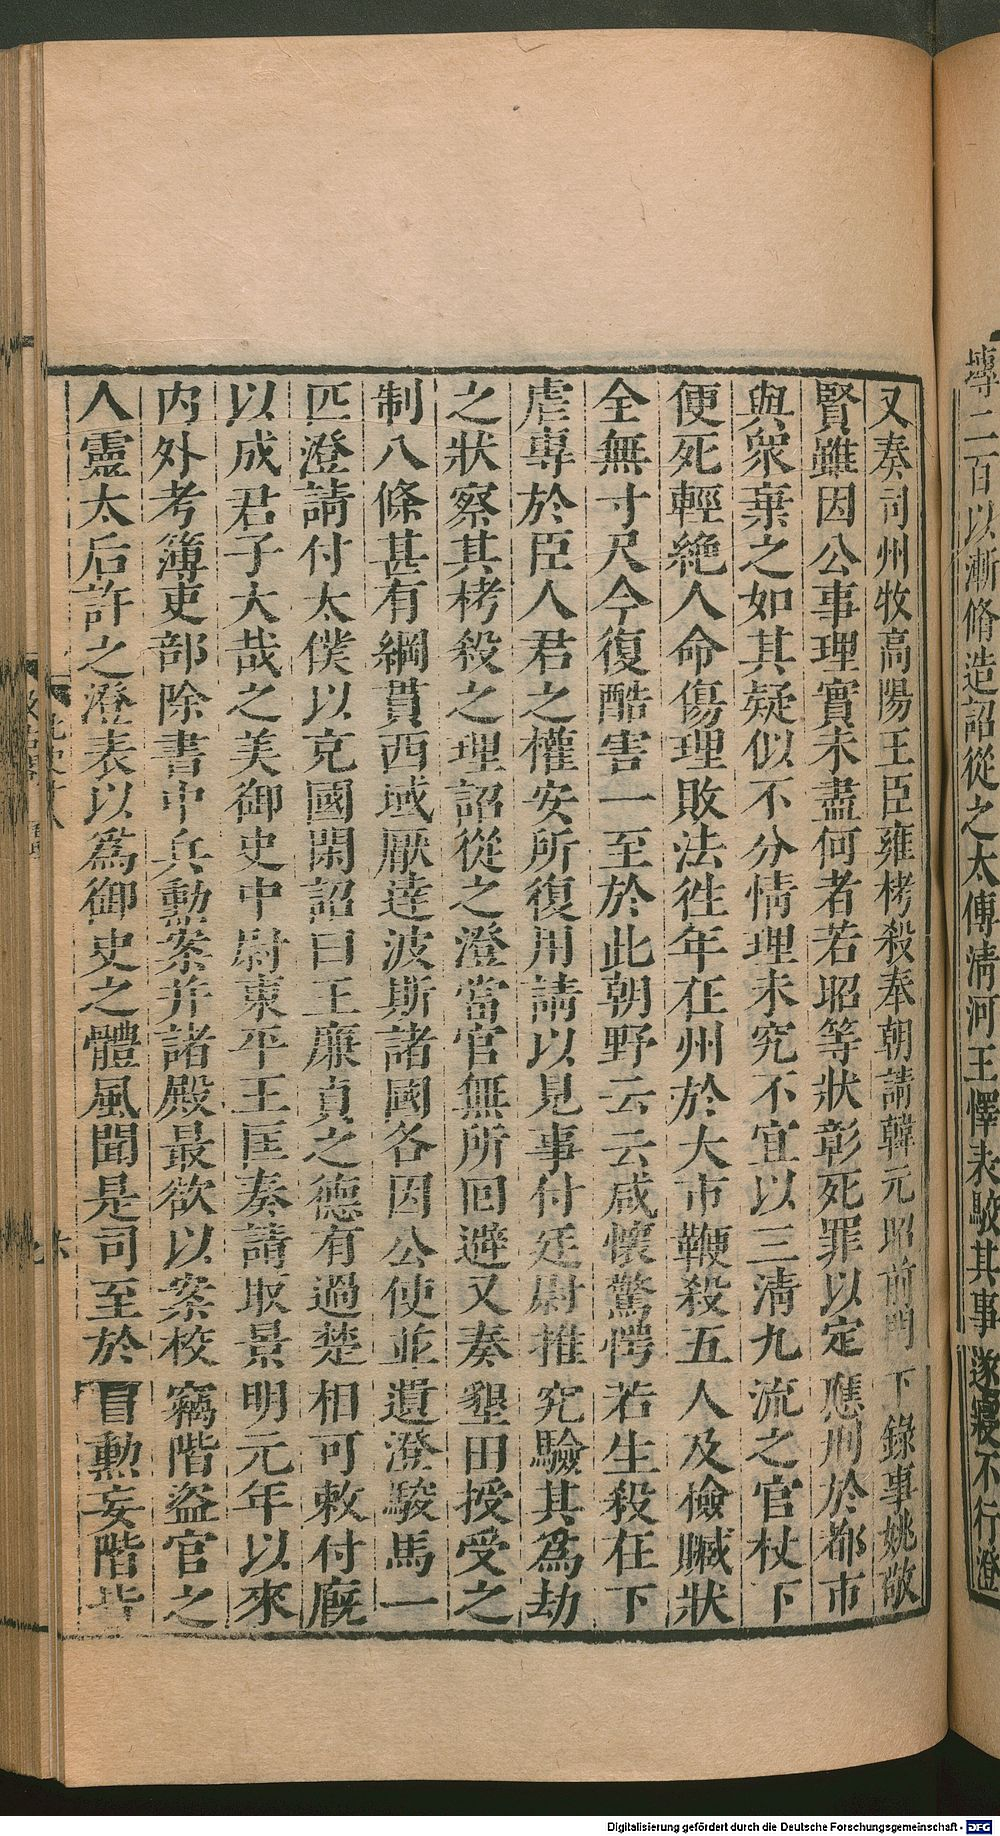 墿二百以漸脩造詔從之太傅淸河王懌表駮其事遂寢不行澄
又奏司州牧高陽王臣雍栲殺奉朝請韓元昭前門下錄事姚敬
賢雖因公事理實未盡何者若昭等狀彰死罪以定應刑於都市
與衆棄之如其疑似不分情理未究不宜以三淸九流之官杖下
便死輕絶人命傷理敗法徃年在州於大市鞭殺五人及檢贓狀
全無寸尺今復酷害一至於此朝野云云咸懷驚愕若生殺在下
虐專於臣人君之權安所復用請以見事付廷尉推究驗其爲劫
之狀察其栲殺之理詔從之澄當官無所回避又奏墾田授受之
制八條甚有綱貫西域厭達波斯諸國各因公使並遺澄駿馬一
匹澄請付太僕以充國閑詔曰王廉貞之德有過楚相可敕付廐
以成君子大哉之美御史中尉東平王匡奏請取景明元年以來
内外考簿吏部除書中兵勳案并諸殿最欲以案校竊階盜官之
人靈太后許之澄表以爲御史之體風聞是司至於冒勳妄階皆
Digitalisierung gefördert durch die Deutsche Forschungsgemeinschaft - DFG